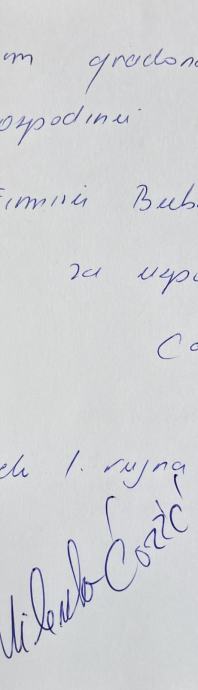 m gradona
ospodinu
Bub
za uspo
Co
1. rujna
Milenko Ćozić